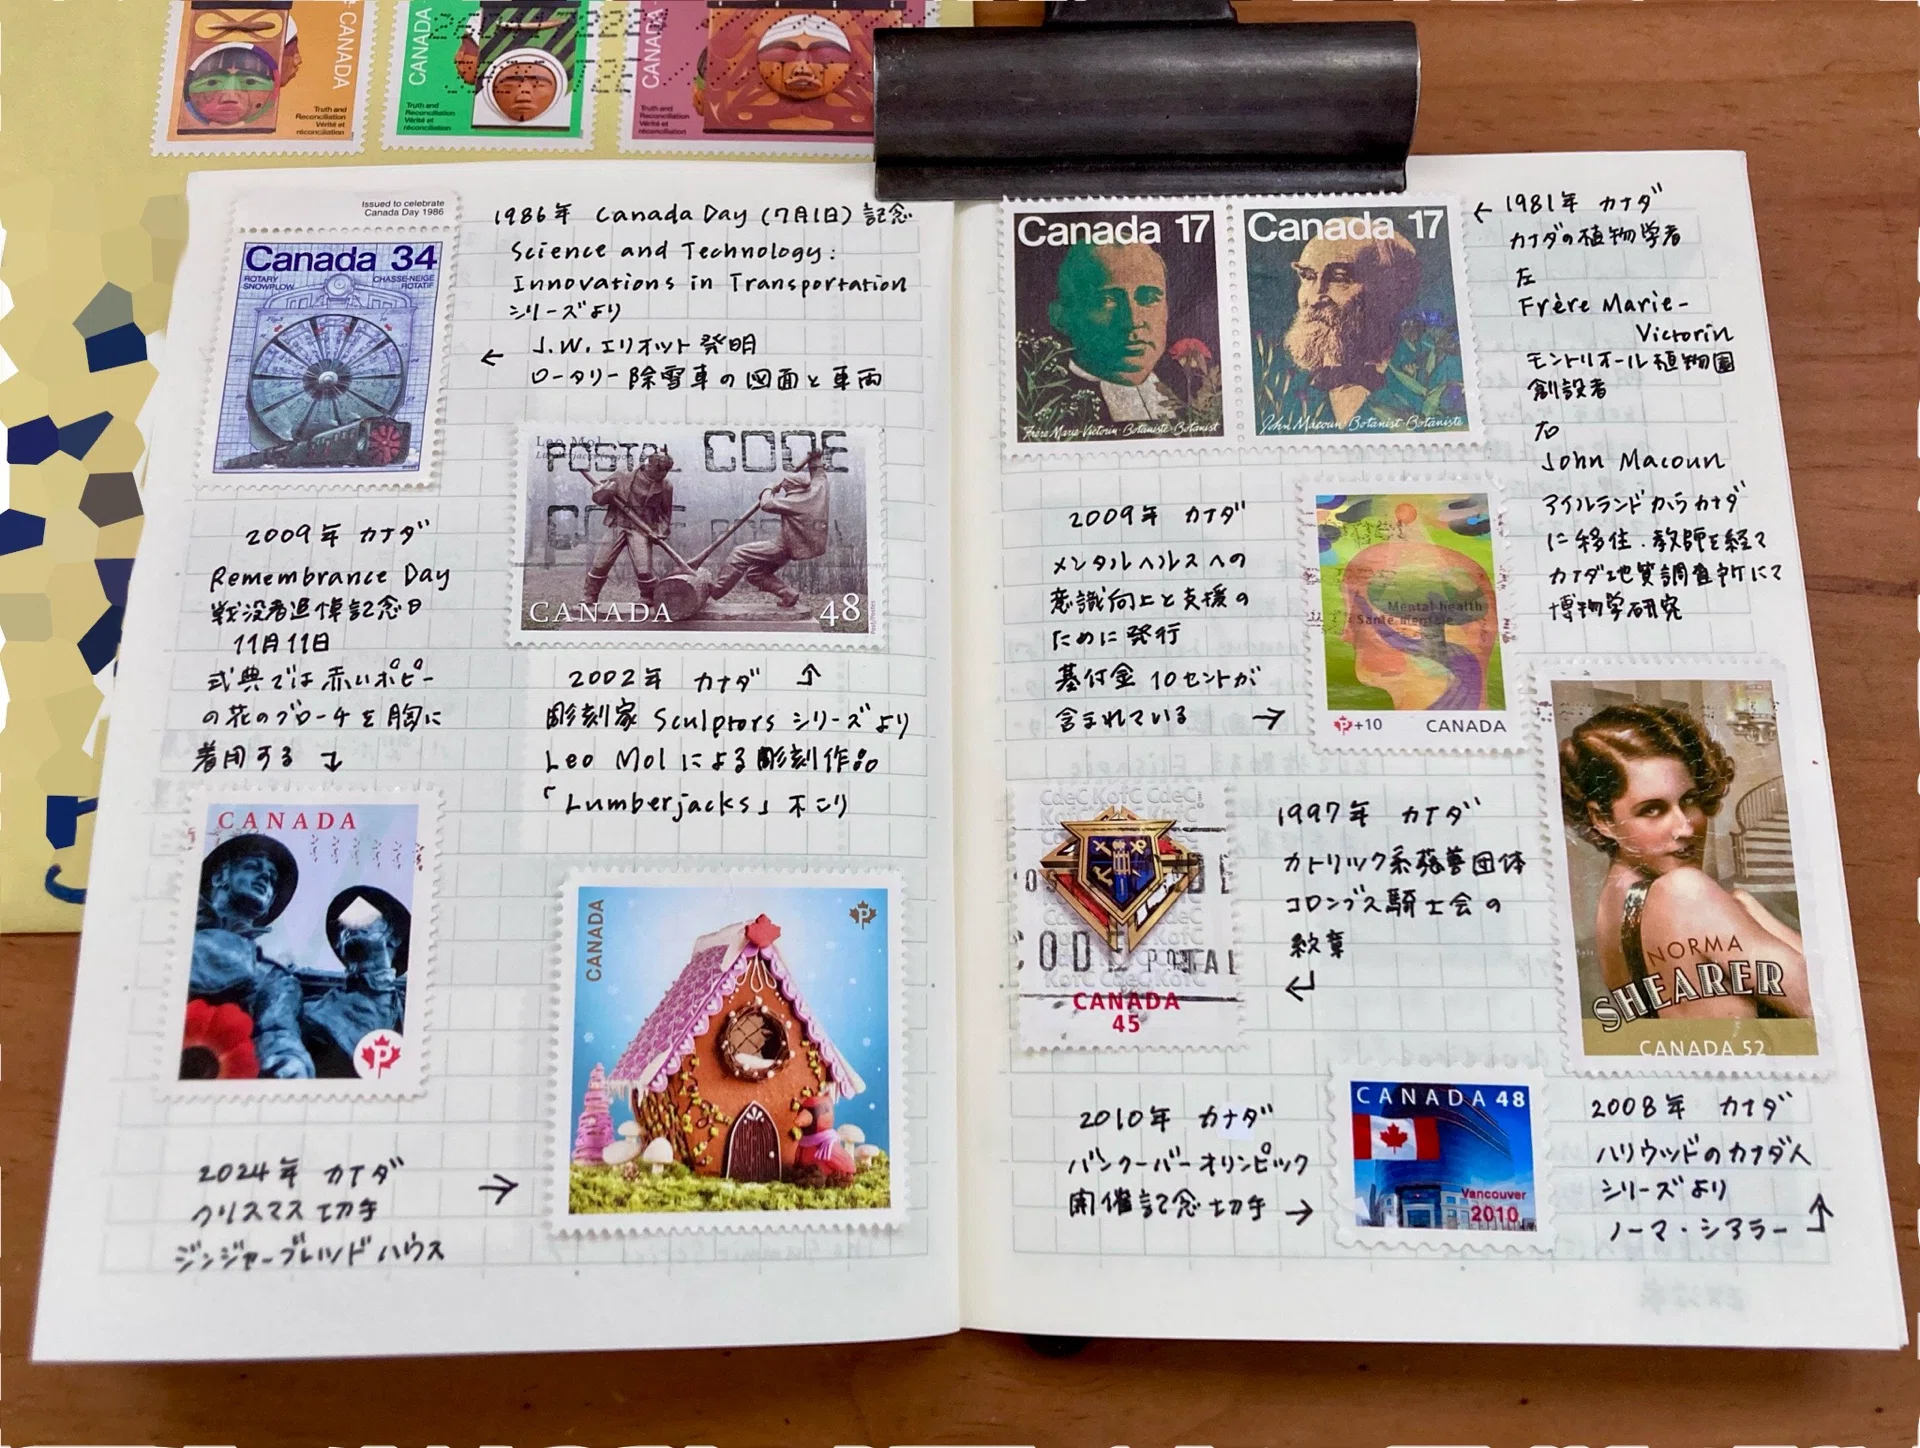 CANADA
Truth and
Reconciliation
Vérité et
réconciliation
CANADA
Truth and
Reconciliation
Vérité et
réconciliation
CANADA
Truth and
Reconciliation
Vérité et
réconciliation
Issued to celebrate
Canada Day 1986
Canada 34
ROTARY
SNOWPLOW
CHASSE-NEIGE
ROTATIF
1986年 Canada Day (7月1日) 記念
Science and Technology:
Innovations in Transportation
シリーズより
← J.W.エリオット発明
ロータリー除雪車の図面と車両
Leo Mol
POSTAL CODE
CANADA 48
2009年 カナダ
Remembrance Day
戦没者追悼記念日
11月11日
式典では赤いポピー
の花のブローチを胸に
着用する
2002年 カナダ ↑
彫刻家 Sculptors シリーズより
Leo Mol による彫刻作品
「Lumberjacks」木こり
CANADA
P
CANADA
P
2024年 カナダ →
クリスマス切手
ジンジャーブレッドハウス
Canada 17
Frère Marie-Victorin · Botaniste · Botanist
Canada 17
John Macoun Botanist · Botaniste
← 1981年 カナダ
カナダの植物学者
左
Frère Marie-
Victorin
モントリオール植物園
創設者
右
John Macoun
アイルランドからカナダ
に移住.教師を経て
カナダ地質調査所にて
博物学研究
2009年 カナダ
メンタルヘルスへの
意識向上と支援の
ために発行
基付金 10セントが
含まれている →
Mental health
Santé mentale
P+10 CANADA
CdeC KofC CdeC
CODE POSTAL
CANADA
45
1997年 カナダ
カトリック系慈善団体
コロンブス騎士会の
紋章
NORMA
SHEARER
CANADA 52
2010年 カナダ
バンクーバーオリンピック
開催記念切手 →
CANADA 48
Vancouver
2010
2008年 カナダ
ハリウッドのカナダ人
シリーズより
ノーマ・シアラー ↑